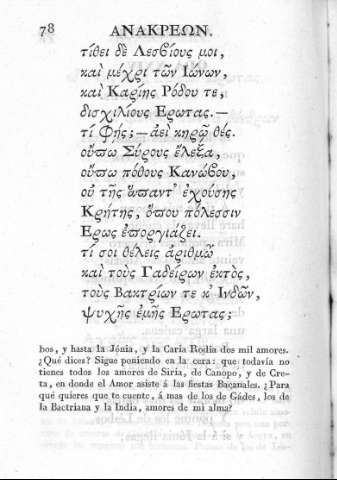 78 ΑΝΑΚΡΕΩΝ.
τίθει δὲ Λεσβίους μοι,
καὶ μέχρι τῶν Ἰώνων,
καὶ Καρίης Ρόδου τε,
δισχιλίους Ερωτας.—
τί φής; — ἀεὶ κηρῷ θές.
οὔπω Σύρους ἔλεξα,
οὔπω πόθους Κανώβου,
οὐ τῆς ἅπαντ' ἐχούσης
Κρήτης, ὅπου πόλεσσιν
Ερως ἐποργιάζει.
τί σοι θέλεις ἀριθμῶ
καὶ τοὺς Γαδείρων ἐκτὸς,
τοὺς Βακτρίων τε κ' Ινδῶν,
ψυχῆς ἐμῆς Ερωτας;
bos, y hasta la Jónia, y la Caria Rodia dos mil amores.
¿Qué dices? Sigue poniendo en la cera: que todavía no
tienes todos los amores de Siria, de Canopo, y de Cre-
ta, en donde el Amor asiste á las fiestas Bacanales. ¿Para
qué quieres que te cuente, á mas de los de Gádes, los de
la Bactriana y la India, amores de mi alma?